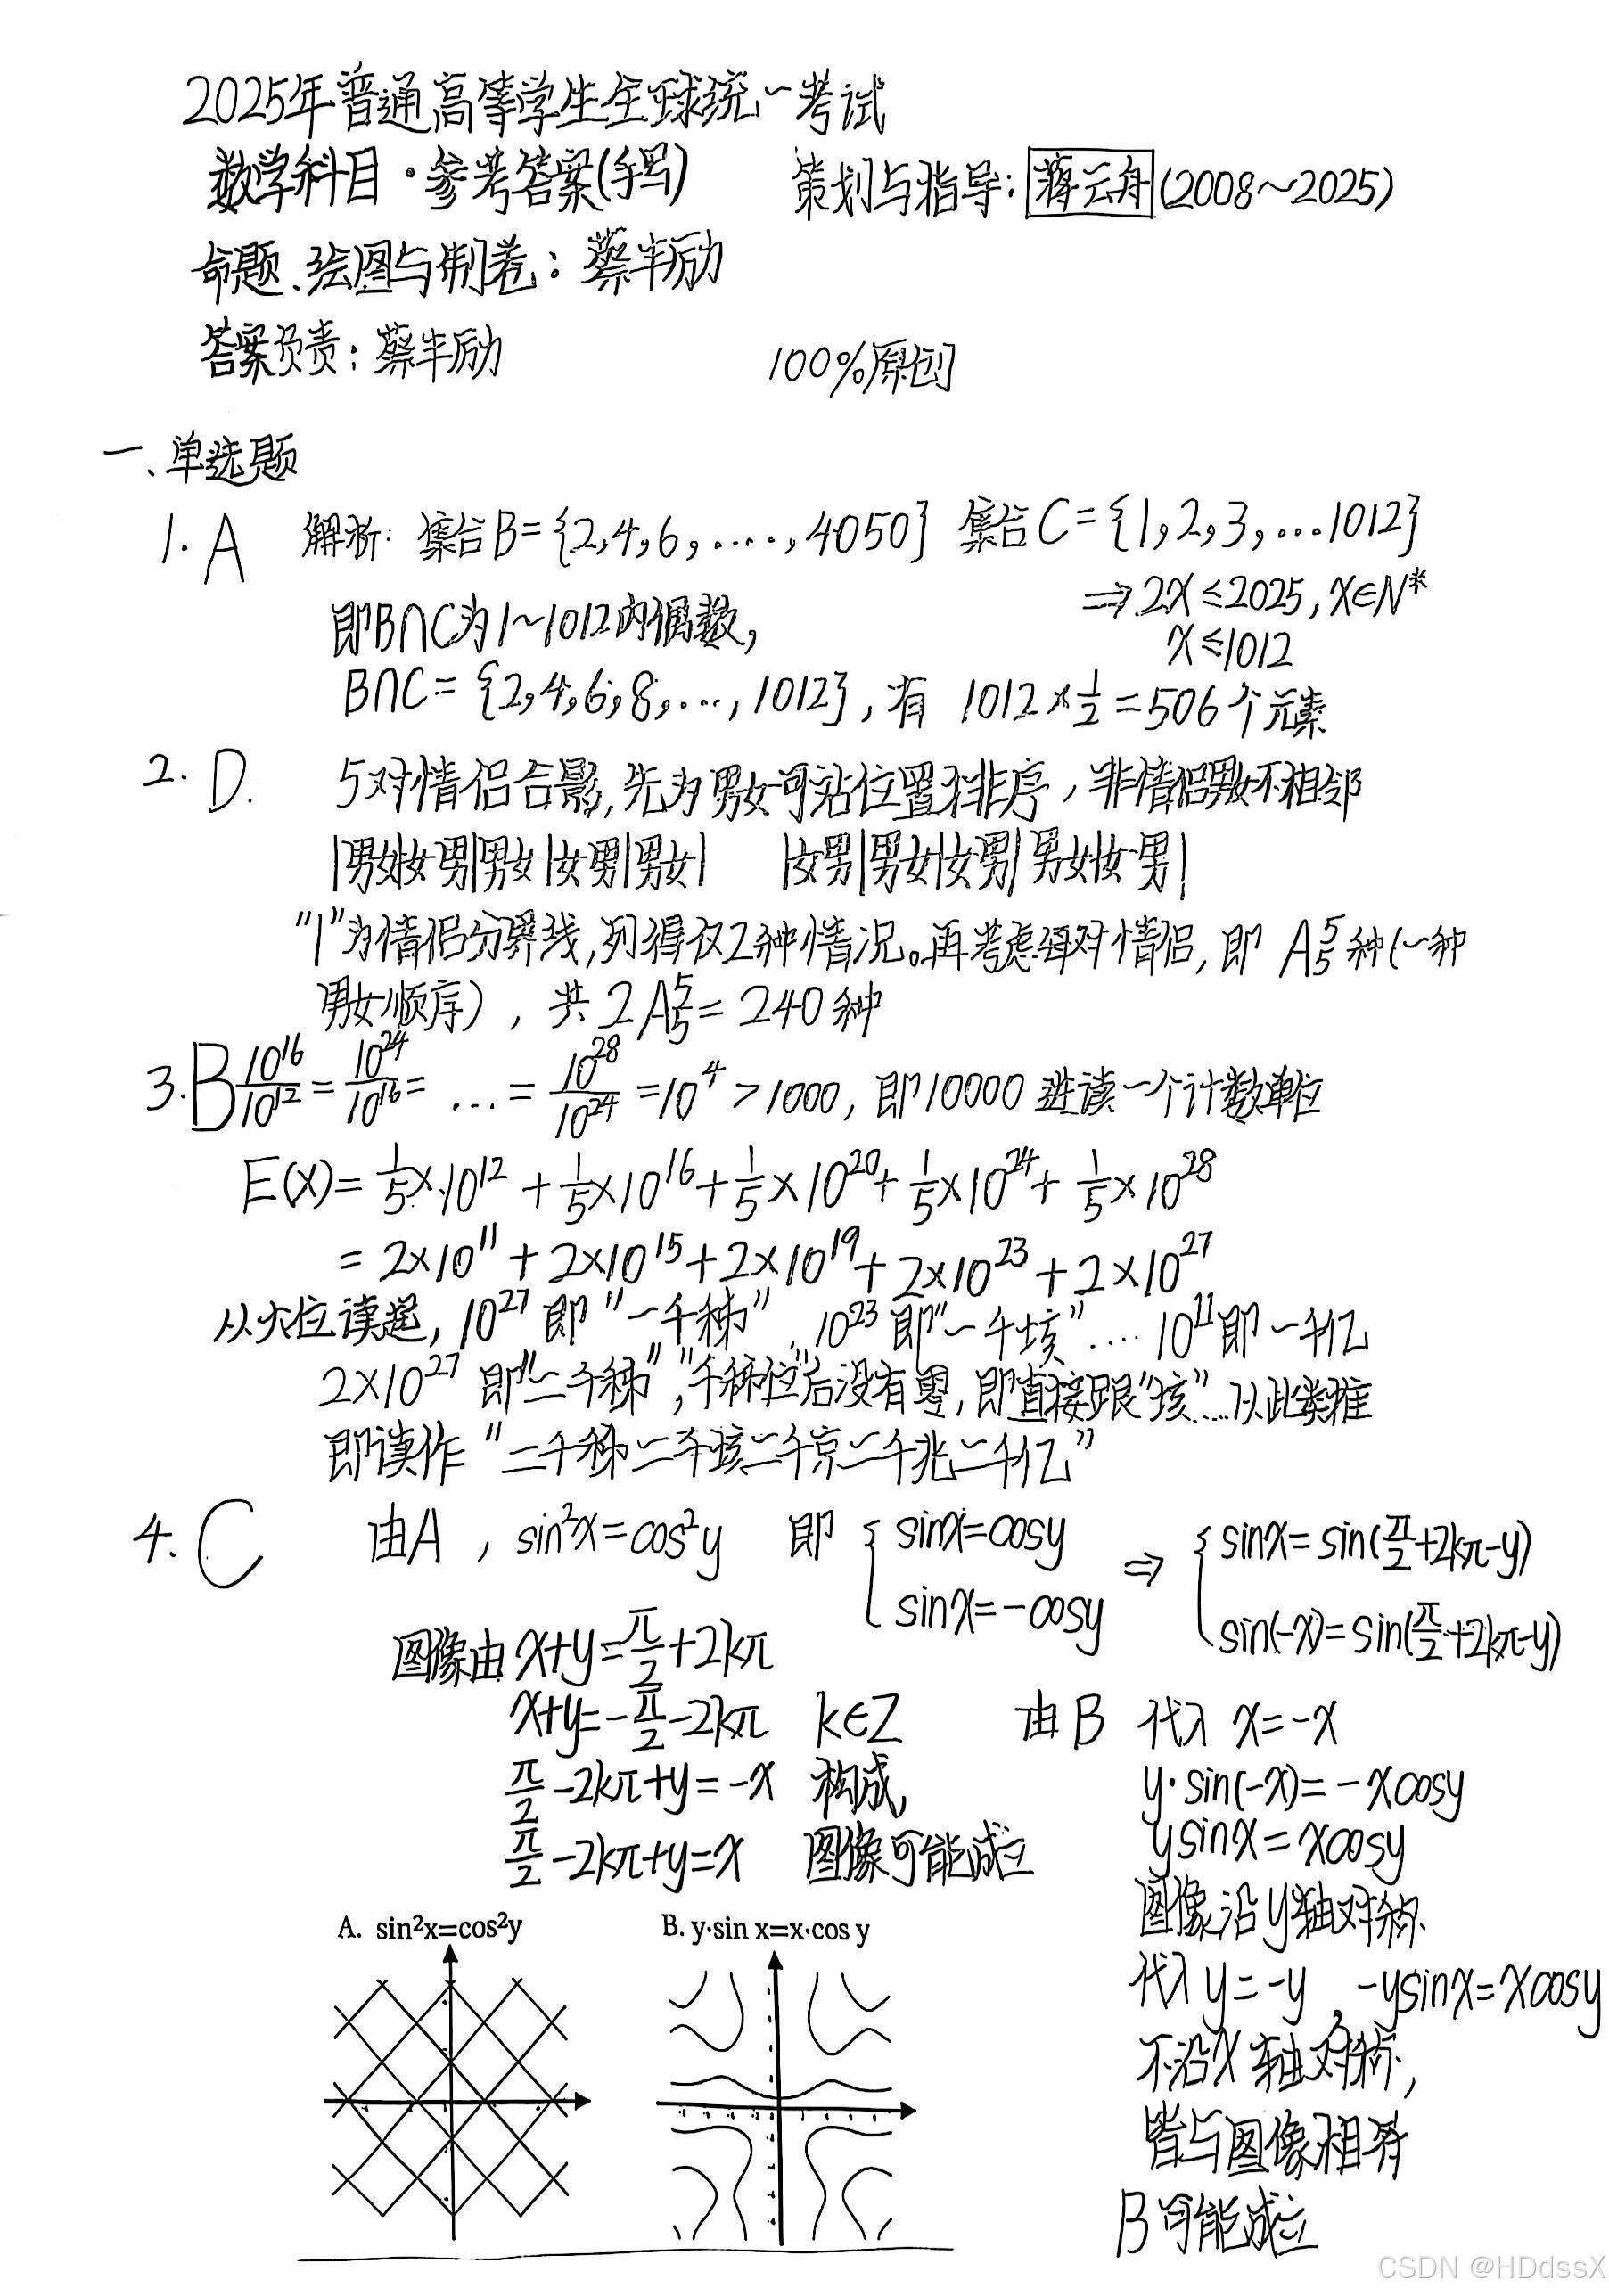 2025年普通高等学生全球统一考试
数学科目·参考答案(手写) 策划与指导:蒋云舟(2008~2025)
命题、绘图与制卷:蔡半励
答案负责:蔡半励 100%原创
一、单选题
1. A 解析: 集合B={2,4,6,....,4050} 集合C={1,2,3,...1012}
即B∩C为1~1012内偶数, ⇒2x≤2025,x∈N*
x≤1012
B∩C={2,4,6,8,...,1012},有 1012×1/2=506个元素
2. D. 5对情侣合影,先为男女可站位置排序,非情侣男女不相邻
|男女|女男|男女|女男|男女| |女男|男女|女男|男女|女男|
"|"为情侣分界线,列得仅2种情况。再考虑每对情侣,即 A₅⁵种(一种
男女顺序),共 2A₅⁵=240种
3. B 10¹⁶/10¹²=10²⁴/10¹⁶=...=10²⁸/10²⁴=10⁴>1000,即10000进读一个计数单位
E(x)=1/5×10¹²+1/5×10¹⁶+1/5×10²⁰+1/5×10²⁴+1/5×10²⁸
=2×10¹¹+2×10¹⁵+2×10¹⁹+2×10²³+2×10²⁷
从大位读起,10²⁷即"一千秭",10²³即"一千垓"...10¹¹即一千亿
2×10²⁷即"二千秭","千秭位"后没有零,即直接跟"垓"...以此类推
即读作"二千秭二千垓二千京二千兆二千亿"
4. C 由A,sin²x=cos²y 即 { sinx=cosy ⇒ { sinx=sin(π/2+2kπ-y)
sinx=-cosy sin(-x)=sin(π/2+2kπ-y)
图像由x+y=π/2+2kπ
x+y=-π/2-2kπ k∈Z
π/2-2kπ+y=-x 构成,
π/2-2kπ+y=x 图像可能成立
由B 代入 x=-x
y·sin(-x)=-xcosy
ysinx=xcosy
图像沿y轴对称.
代入y=-y,-ysinx=xcosy
不沿x轴对称,
皆与图像相符
B可能成立
A. sin²x=cos²y B. y·sin x=x·cos y
CSDN @HDdssX